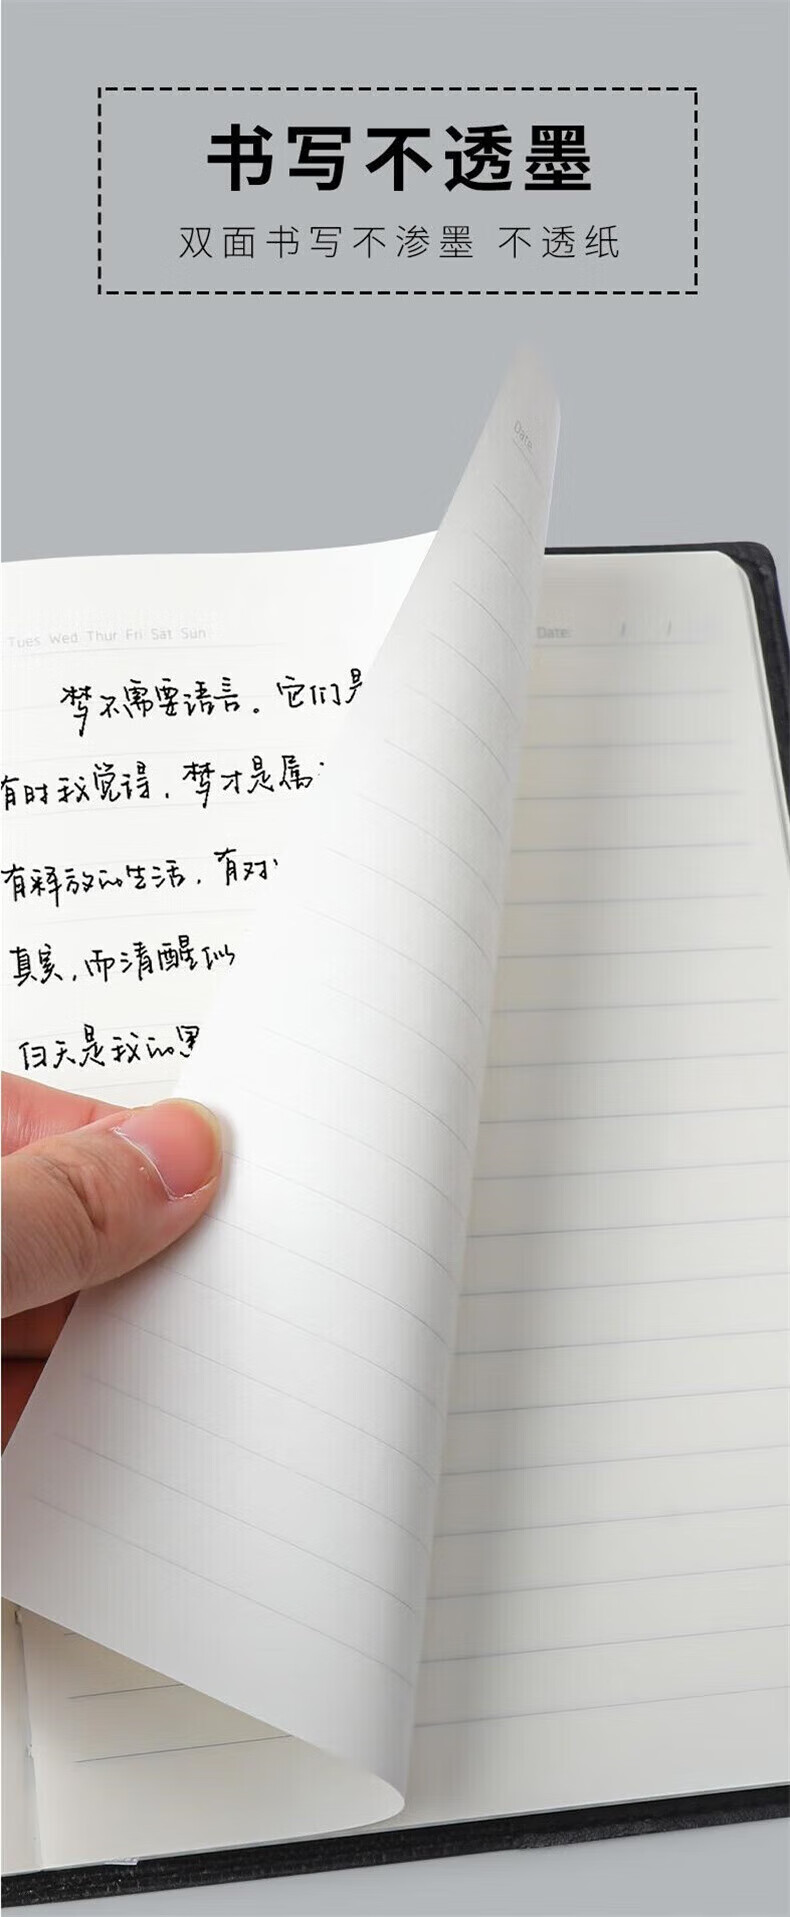 书写不透墨
双面书写不渗墨 不透纸
Date:
Tues Wed Thur Fri Sat Sun
Date: / /
梦不需要语言。它们是
有时我觉得,梦才是属
有释放的生活,有对
真实,而清醒似
白天是我的黑